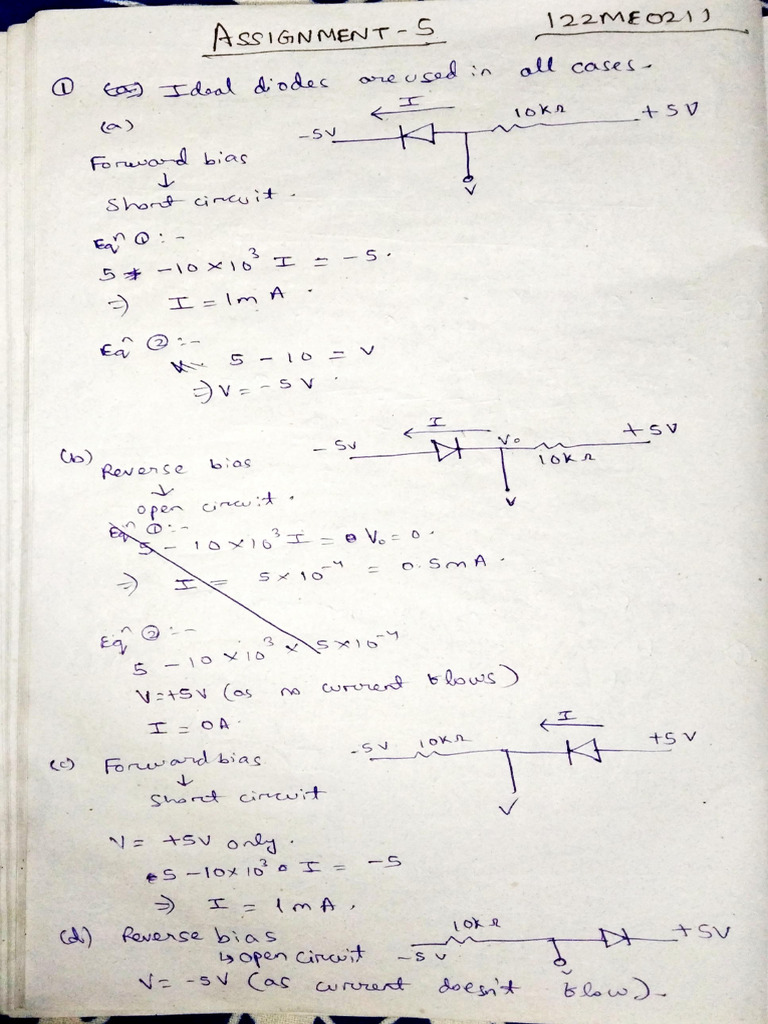 ASSIGNMENT-5 122ME0211
① (a) Ideal diodes are used in all cases.
(a)
I
-5V 10KΩ +5V
V
Forward bias
↓
Short circuit.
Eqⁿ ①:-
5 -10×10³ I = -5.
⇒ I = 1mA.
Eqⁿ ②:-
5 - 10 = V
⇒ V = -5V.
(b) Reverse bias
↓
open circuit.
I
-5V V₀ 10KΩ +5V
V
Eqⁿ ①:-
5 - 10×10³ I = V₀ = 0.
⇒ I = 5×10⁻⁴ = 0.5mA.
Eqⁿ ②:-
5 - 10×10³ × 5×10⁻⁴
V=+5V (as no current flows)
I = 0A.
(c) Forward bias
↓
Short circuit
I
-5V 10KΩ +5V
V
V= +5V only.
5-10×10³ I = -5
⇒ I = 1mA.
(d) Reverse bias
↳ open circuit
10KΩ
-5V +5V
V
V= -5V (as current doesn't flow).